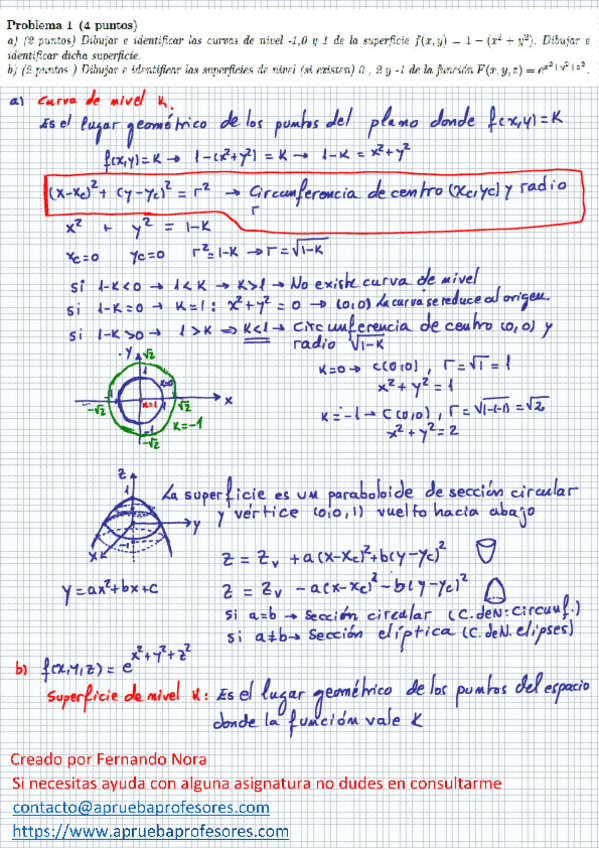 Problema 1 (4 puntos)
a) (2 puntos) Dibujar e identificar las curvas de nivel -1,0 y 1 de la superficie f(x, y) = 1 − (x² + y²). Dibujar e
identificar dicha superficie.
b) (2 puntos ) Dibujar e identificar las superficies de nivel (si existen) 0 , 2 y -1 de la función F(x, y, z) = e^(x²+y²+z²).
a) Curva de nivel K.
Es el lugar geométrico de los puntos del plano donde f(x,y)=K
f(x,y)=K → 1-(x²+y²)=K → 1-K = x²+y²
(x-xc)²+ (y-yc)² = r² → Circunferencia de centro (xc,yc) y radio
r
x² + y² = 1-K
xc=0 yc=0 r²=1-K → r=√1-K
si 1-K<0 → 1<K → K>1 → No existe curva de nivel
si 1-K=0 → K=1: x²+y²=0 → (0,0) La curva se reduce al origen.
si 1-K>0 → 1>K ⇒ K<1 → circunferencia de centro (0,0) y
radio √1-K
K=0 → C(0,0), r=√1=1
x²+y²=1
K=-1 → C(0,0), r=√1-(-1)=√2
x²+y²=2
Y √2
1
K=0
-√2 -1 K=1 1 √2 x
K=-1
-1
-√2
z
1
y
x
La superficie es un paraboloide de sección circular
y vértice (0,0,1) vuelto hacia abajo
z = zv + a(x-xc)²+b(y-yc)²
y=ax²+bx+c
z = zv - a(x-xc)²-b(y-yc)²
si a=b → sección circular (C.deN: circunf.)
si a≠b → Sección elíptica (C.deN. elipses)
b) f(x,y,z) = e^(x²+y²+z²)
Superficie de nivel K: Es el lugar geométrico de los puntos del espacio
donde la función vale K
Creado por Fernando Nora
Si necesitas ayuda con alguna asignatura no dudes en consultarme
contacto@apruebaprofesores.com
https://www.apruebaprofesores.com